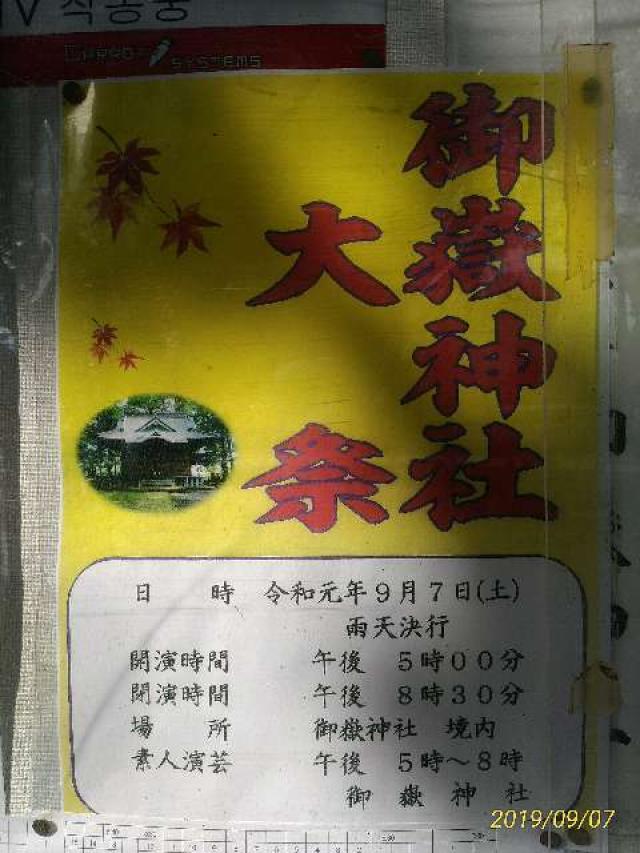 CCTV 작동중
御嶽神社
大祭
日時 令和元年9月7日(土)
雨天決行
開演時間 午後 5時00分
閉演時間 午後 8時30分
場所 御嶽神社 境内
素人演芸 午後 5時～8時
御嶽神社
2019/09/07